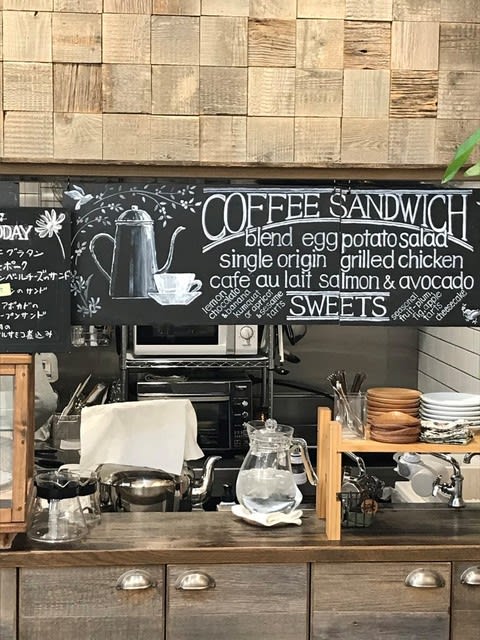 ODAY
グラタン
ポーク
ンベルチーズのサンド
ンのサンド
アボカドの
ープンサンド
ルサミコ煮込み
COFFEE SANDWICH
blend egg potato salad
single origin grilled chicken
cafe au lait salmon & avocado
SWEETS
lemon
chocolate
& banana
sesame
tarte
seasonal
fruit-plum
fig, apple
tarte
cheesecake